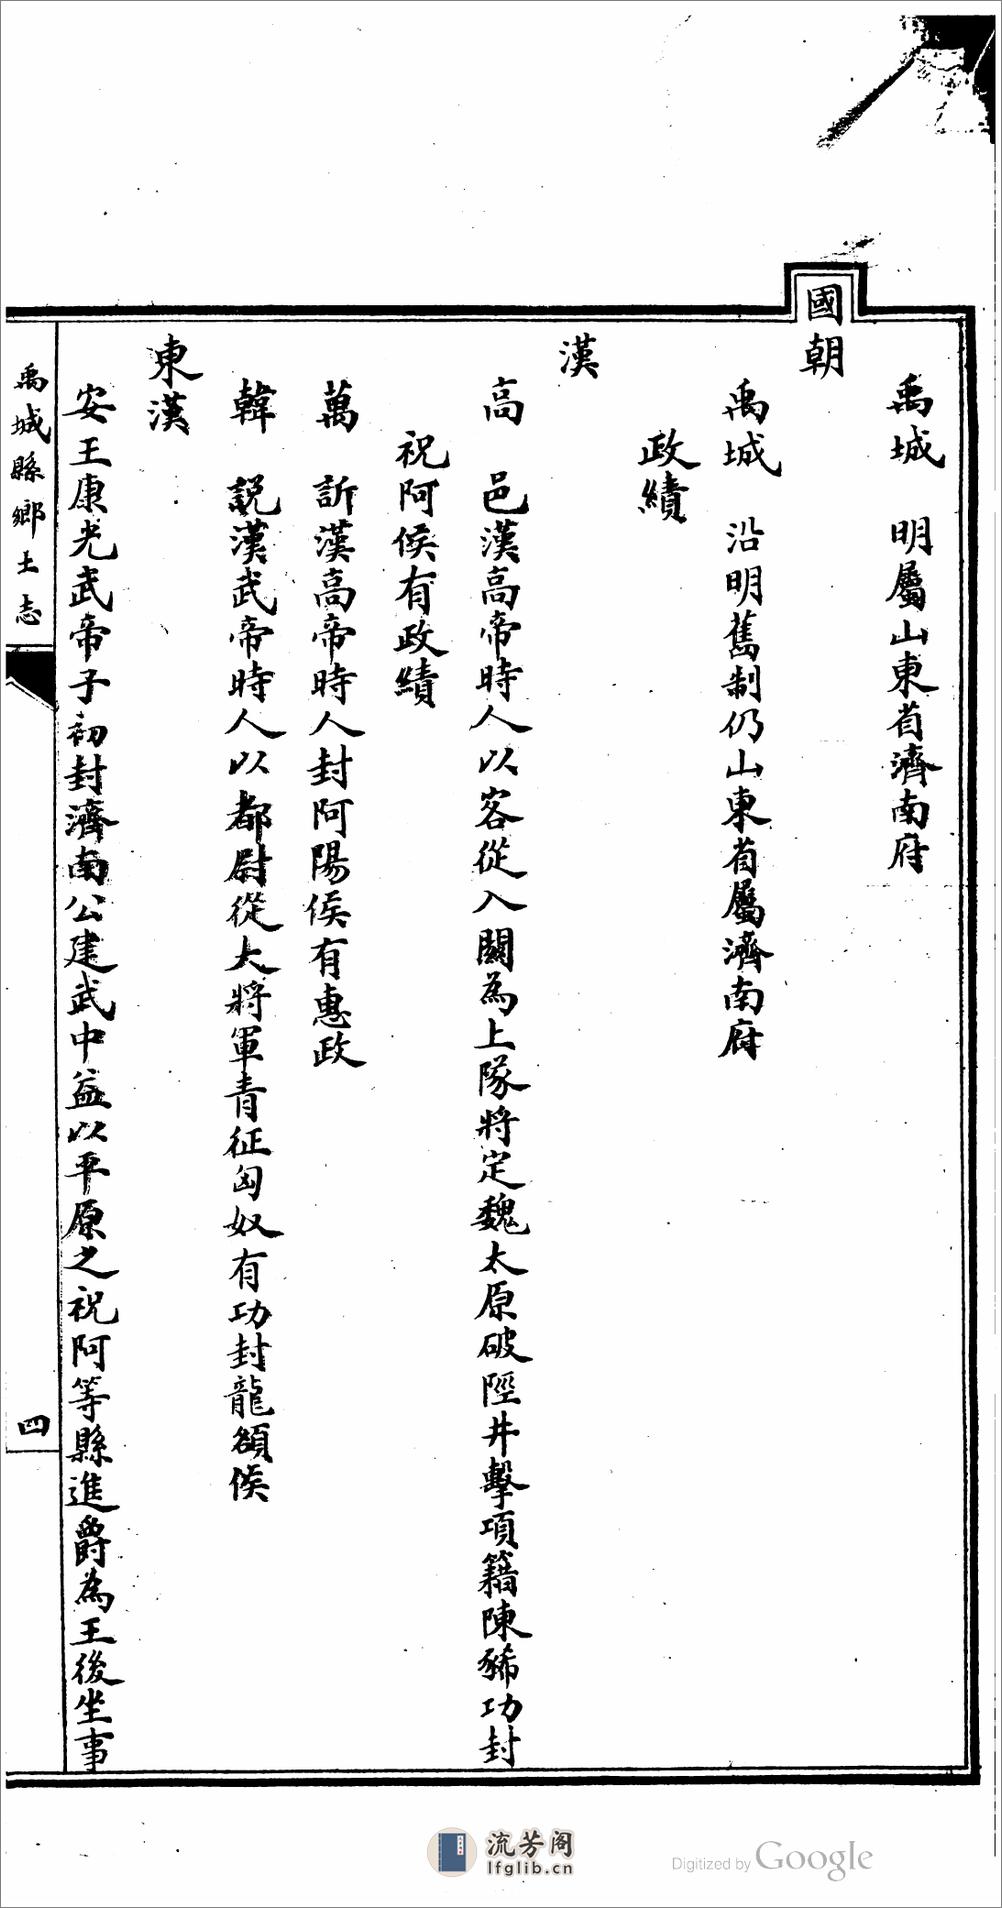 禹城　明屬山東省濟南府
國朝
禹城　沿明舊制仍山東省屬濟南府
政績
漢
高　邑漢高帝時人以客從入關為上隊將定魏太原破陘井擊項籍陳豨功封
祝阿侯有政績
萬　訢漢高帝時人封阿陽侯有惠政
韓　説漢武帝時人以都尉從大將軍青征匈奴有功封龍頟侯
東漢
安王康光武帝子初封濟南公建武中益以平原之祝阿等縣進爵為王後坐事
禹城縣鄉土志
四
流芳阁
lfglib.cn
Digitized by Google